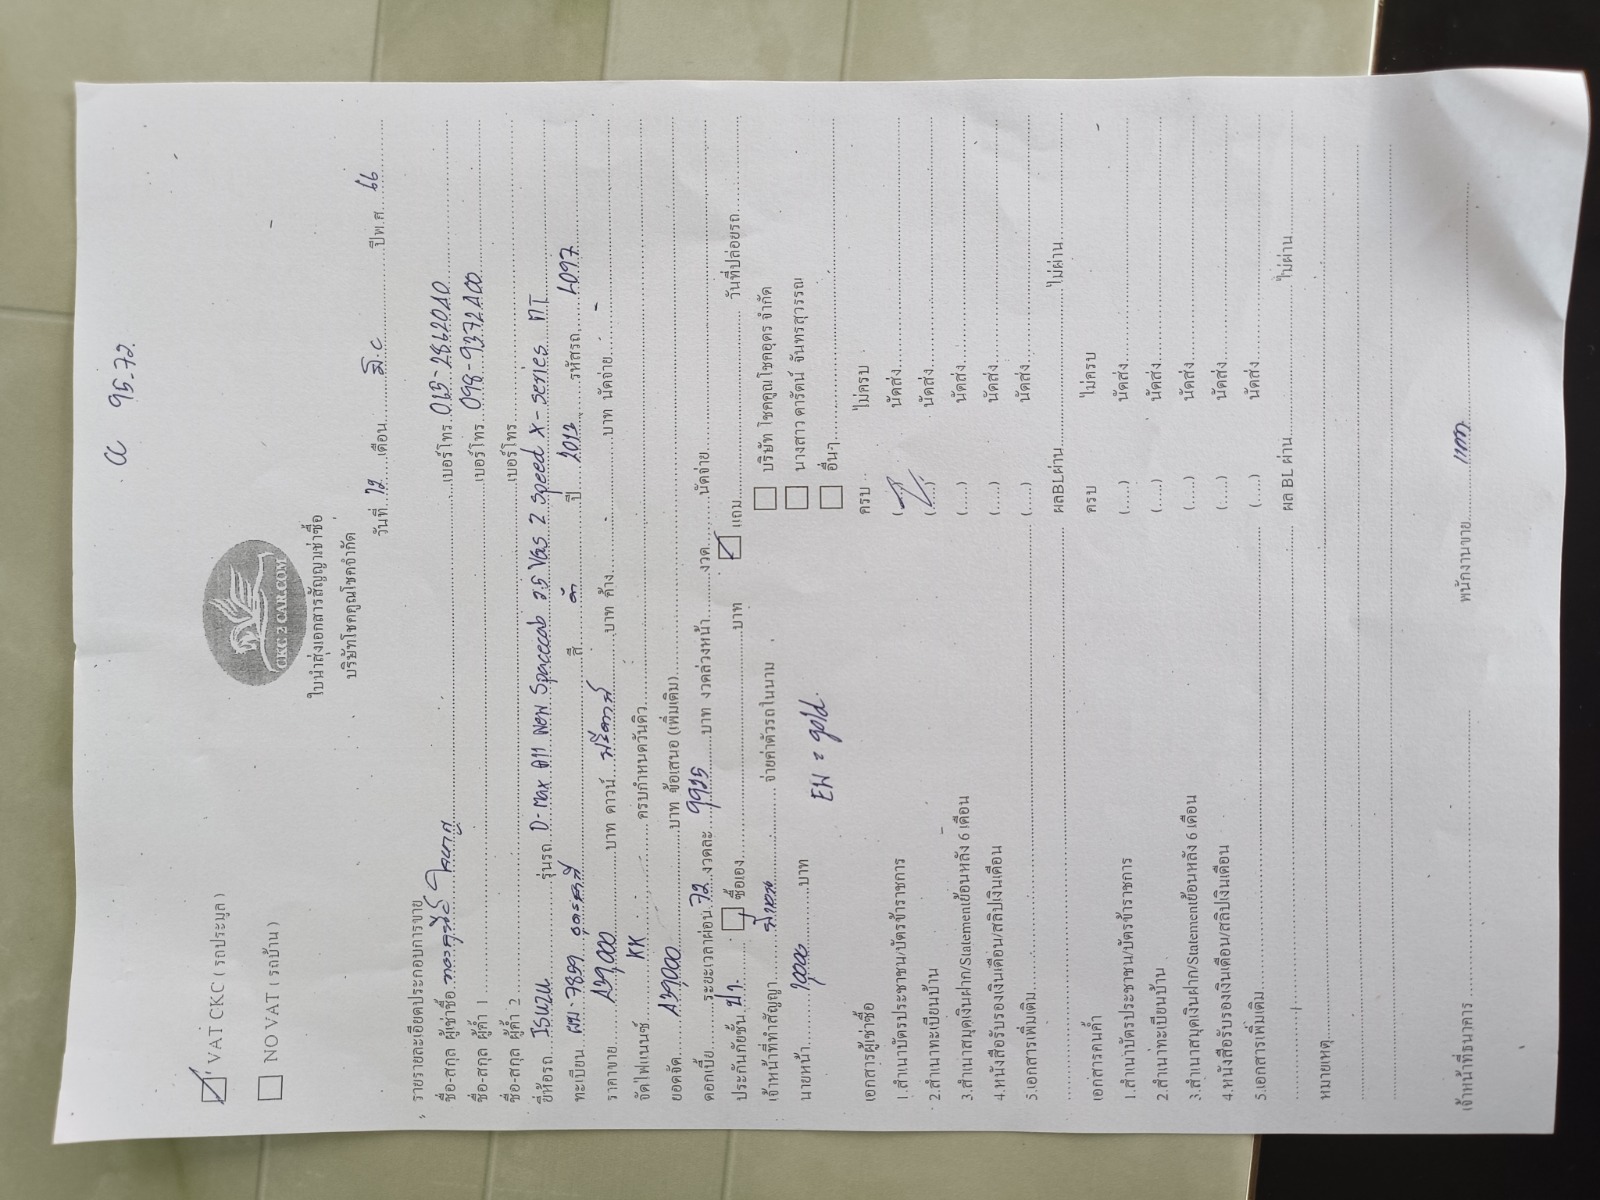 cc 95.72.
CKC 2 CAR.COM
VAT CKC ( รถประมูล )
NO VAT ( รถบ้าน )
ใบนำส่งเอกสารสัญญาเช่าซื้อ
บริษัทโชคคูณโชคจำกัด
วันที่ 12 เดือน มี.ค ปีพ.ศ. 66
รายรายละเอียดประกอบการขาย
ชื่อ-สกุล ผู้เช่าซื้อ เบอร์โทร
ชื่อ-สกุล ผู้ค้ำ 1 เบอร์โทร 098-9372400
ชื่อ-สกุล ผู้ค้ำ 2 เบอร์โทร
ยี่ห้อรถ ISUZU รุ่นรถ D-max All New Spacecab 2.5 VGS Z Speed X-series MT
ทะเบียน ผม-7859 อุดรธานี สี ดำ ปี 2013 รหัสรถ 4097
ราคาขาย บาท ดาวน์ ฟรีดาวน์ บาท ค้าง บาท นัดจ่าย
จัดไฟแนนซ์ KK ครบกำหนดวันคิว
ยอดจัด บาท ข้อเสนอ (เพิ่มเติม)
ดอกเบี้ย ระยะเวลาผ่อน 72 งวดละ 9925 บาท งวดล่วงหน้า งวด นัดจ่าย
ประกันภัยชั้น ป1 ซื้อเอง บาท แถม วันที่ปล่อยรถ
เจ้าหน้าที่ทำสัญญา จ่ายค่าตัวรถในนาม บริษัท โชคคูณโชคอุดร จำกัด
นายหน้า บาท นางสาว ดารัตน์ จันทรสุวรรณ
EW = gold. อื่นๆ
เอกสารผู้เช่าซื้อ ครบ ไม่ครบ
1.สำเนาบัตรประชาชน/บัตรข้าราชการ (....) นัดส่ง
2.สำเนาทะเบียนบ้าน (....) นัดส่ง
3.สำเนาสมุดเงินฝาก/Statementย้อนหลัง 6 เดือน (....) นัดส่ง
4.หนังสือรับรองเงินเดือน/สลิปเงินเดือน (....) นัดส่ง
5.เอกสารเพิ่มเติม (....) นัดส่ง
ผลBLผ่าน ไม่ผ่าน
เอกสารคนค้ำ ครบ ไม่ครบ
1.สำเนาบัตรประชาชน/บัตรข้าราชการ (....) นัดส่ง
2.สำเนาทะเบียนบ้าน (....) นัดส่ง
3.สำเนาสมุดเงินฝาก/Statementย้อนหลัง 6 เดือน (....) นัดส่ง
4.หนังสือรับรองเงินเดือน/สลิปเงินเดือน (....) นัดส่ง
5.เอกสารเพิ่มเติม (....) นัดส่ง
ผล BL ผ่าน ไม่ผ่าน
หมายเหตุ
เจ้าหน้าที่ธนาคาร พนักงานขาย